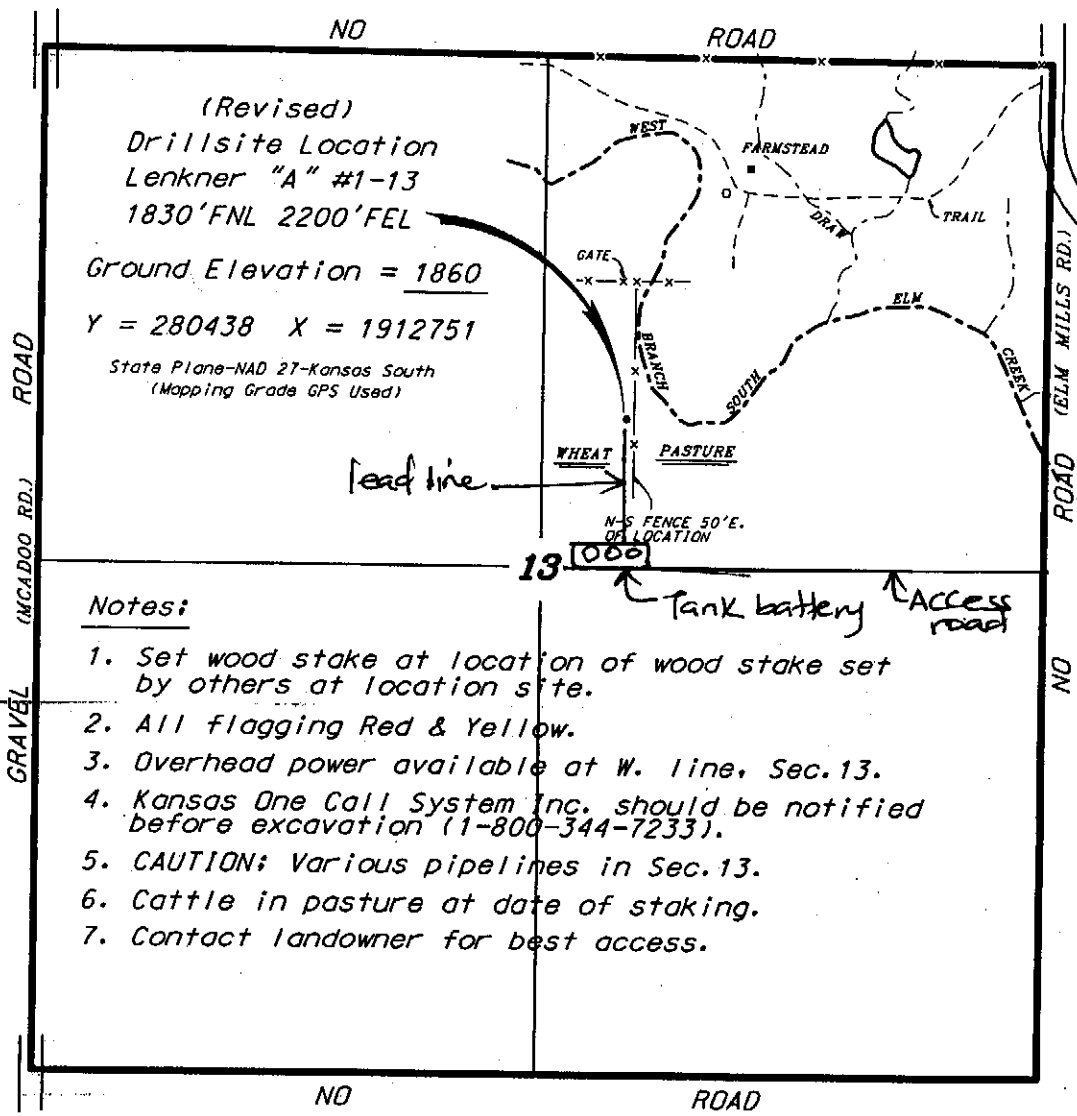 NO ROAD
(Revised)
Drillsite Location
Lenkner "A" #1-13
1830'FNL 2200'FEL
Ground Elevation = 1860
Y = 280438 X = 1912751
State Plane-NAD 27-Kansas South
(Mapping Grade GPS Used)
WEST
FARMSTEAD
DRAW
TRAIL
GATE
ELM
BRANCH
SOUTH
CREEK
WHEAT
PASTURE
lead line
N-S FENCE 50'E.
OF LOCATION
13
Tank battery
Access
road
GRAVEL (MCADOO RD.) ROAD
NO ROAD (ELM MILLS RD.)
Notes:
1. Set wood stake at location of wood stake set
by others at location site.
2. All flagging Red & Yellow.
3. Overhead power available at W. line, Sec.13.
4. Kansas One Call System Inc. should be notified
before excavation (1-800-344-7233).
5. CAUTION: Various pipelines in Sec.13.
6. Cattle in pasture at date of staking.
7. Contact landowner for best access.
NO ROAD